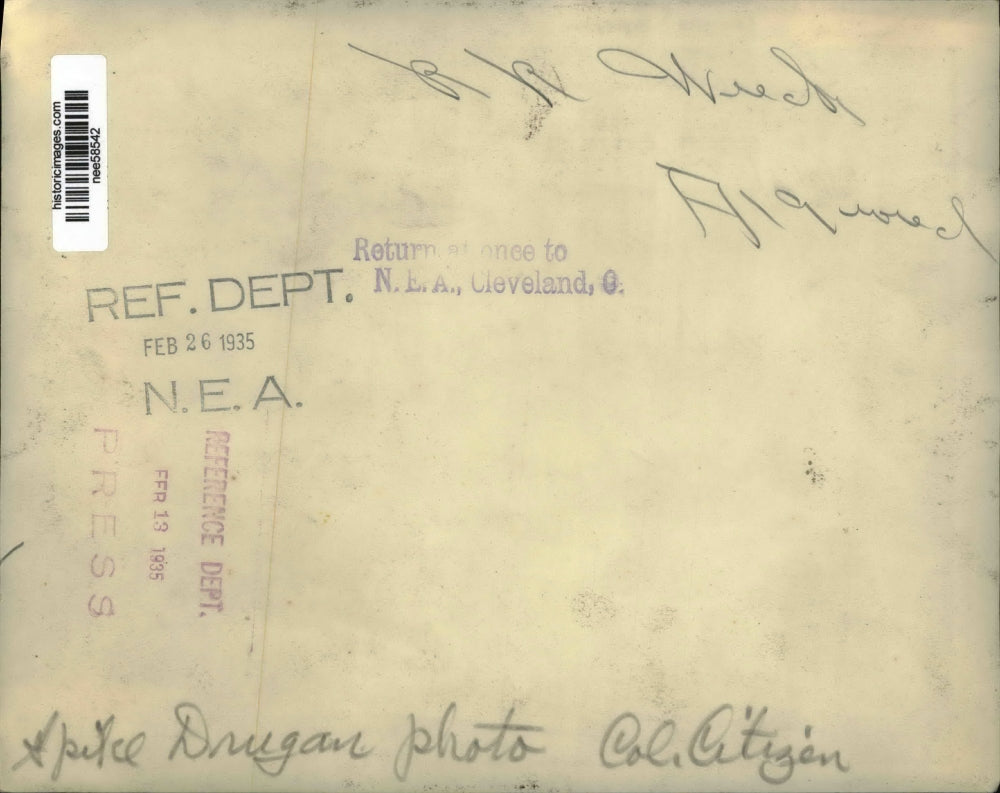 RR Wreck
historicimages.com
nee58542
Return at once to
N. E. A., Cleveland, O.
REF. DEPT.
FEB 26 1935
N. E. A.
REFERENCE DEPT.
FEB 13 1935
PRESS
Spike Drugan photo Col. Citizen